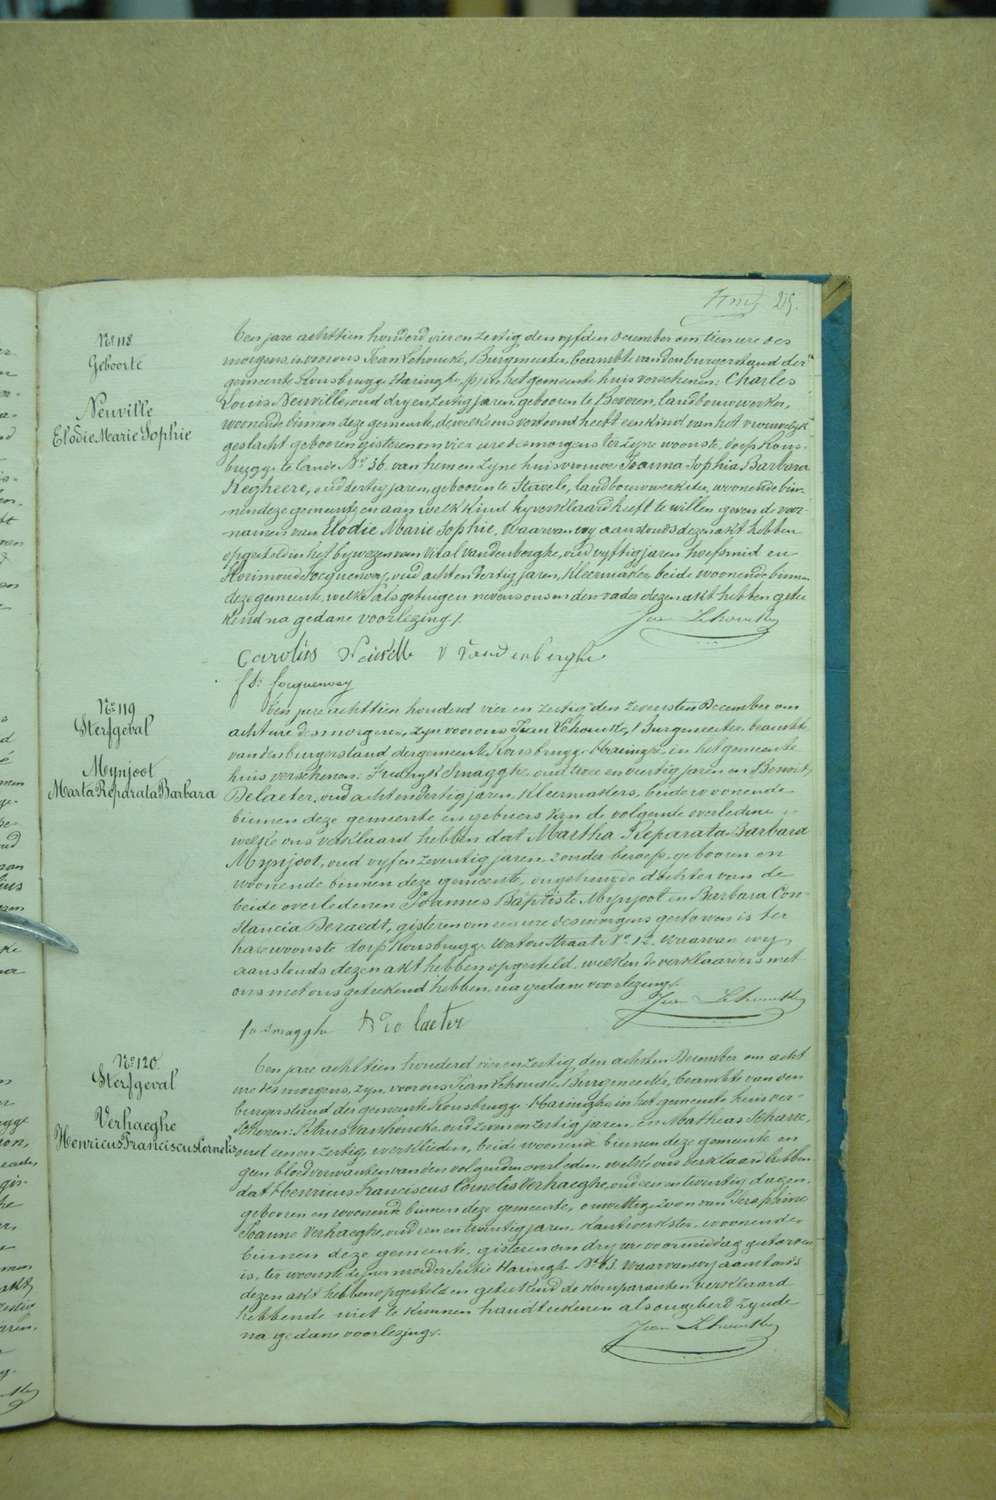 29.
N° 118
Geboorte
Neuville
Elodie Marie Sophie
Ten jare achttien honderd vier en zestig den vyfden December om tien ure des
morgens, is voor ons Jean Lehoucke, Burgmeester, beambte van den burgerstand der
gemeente Rousbrugge Haringhe, in het gemeente huis verschenen: Charles
Louis Neuville, oud dry en zestig jaren, geboren te Beveren, landbouwwerker,
woonende binnen deze gemeente, dewelke ons vertoont heeft een kind van het vrouwelyk
geslacht geboren gisteren om vier ure des morgens ter zyne woonste, dorp Rous-
brugge te lande N° 36, van hem en zyne huisvrouwe Joanna Sophia Barbara
Kegheere, oud dertig jaren, geboren te Stavele, landbouwwerkster, woonende bin-
nen deze gemeente, en aan welk kind hy verklaard heeft te willen geven de voor-
namen van Elodie Marie Sophie, Waarvan wy aanstonds dezen akt hebben
opgesteld in het bywezen van Vital Vandenberghe, oud vyftig jaren, hoefsmid en
Florimond Focquenoey, oud acht en dertig jaren, Kleermaker, beide woonende binnen
deze gemeente, welke als getuigen nevens ons en den vader dezen akt hebben getee
kend na gedane voorlezing.
Jean Lehoucke
Carolus Neuville V Vandenberghe
f d: focquenoey
N° 119
Sterfgeval
Mynjoot
Marta Reparata Barbara
Ten jare achttien honderd vier en zestig den zevensten December om
acht ure des morgens, zyn voor ons Jean Lehoucke, Burgmeester, beambte
van den burgerstand der gemeente Rousbrugge Haringhe, in het gemeente
huis verschenen: Frederyk Smagghe, oud twee en veertig jaren en Benoit
Delaeter, oud acht en dertig jaren, Kleermakers, beide woonende
binnen deze gemeente en gebuers van de volgende overledene
welke ons verklaard hebben dat Martha Reparata Barbara
Mynjoot, oud vyf en zeventig jaren, zonder beroep, geboren en
woonende binnen deze gemeente, ongehuwde dochter van de
beide overledenen Joannes Baptiste Mynjoot en Barbara Con-
stancia Deraedt, gisteren om een ure des morgens gestorven is ter
hare woonste dorp Rousbrugge Waterstraat N° 12. waarvan wy
aanstonds dezen akt hebben opgesteld, welken de verklaarders met
ons geteekend hebben, na gedane voorlezing.
Jean Lehoucke
fr smagghe B De laeter
N° 120
Sterfgeval
Verhaeghe
Henricus Franciscus Cornelis
Ten jare achttien honderd vier en zestig den achsten December om acht
ure des morgens, zyn voor ons Jean Lehoucke, Burgmeester, beambte van den
burgerstand der gemeente Rousbrugge Haringhe in het gemeente huis ver-
schenen: Petrus Vanhoucke, oud zeven en zestig jaren, en Matheus Scharre,
oud een en zestig, werklieden, beide woonende binnen deze gemeente en
geen bloedverwanten van den volgenden overleden, welke ons verklaard hebben
dat Henricus Franciscus Cornelis Verhaeghe, oud een en twintig dagen,
geboren en woonende binnen deze gemeente, onwettige zoon van Seraphine
Joanne Verhaeghe, oud een en twintig jaren, Kantwerkster, woonende
binnen deze gemeente, gisteren om dry ure voormiddag gestorven
is, ter woonste zyner moeder sectie Haringhe N° 63. Waarvan wy aanstonds
dezen akt hebben opgesteld en geteekend de komparanten verklaard
hebbende niet te kunnen handteekenen als ongeleerd zynde
na gedane voorlezing.
Jean Lehoucke